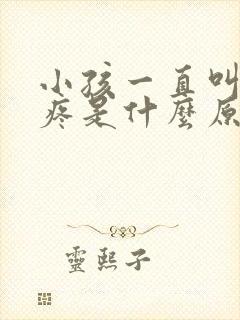 小孩一直叫
疼是什麼原
靈熙子